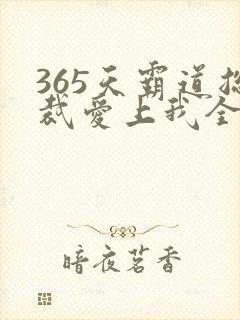 365天霸道总
裁爱上我全
暗夜茗香